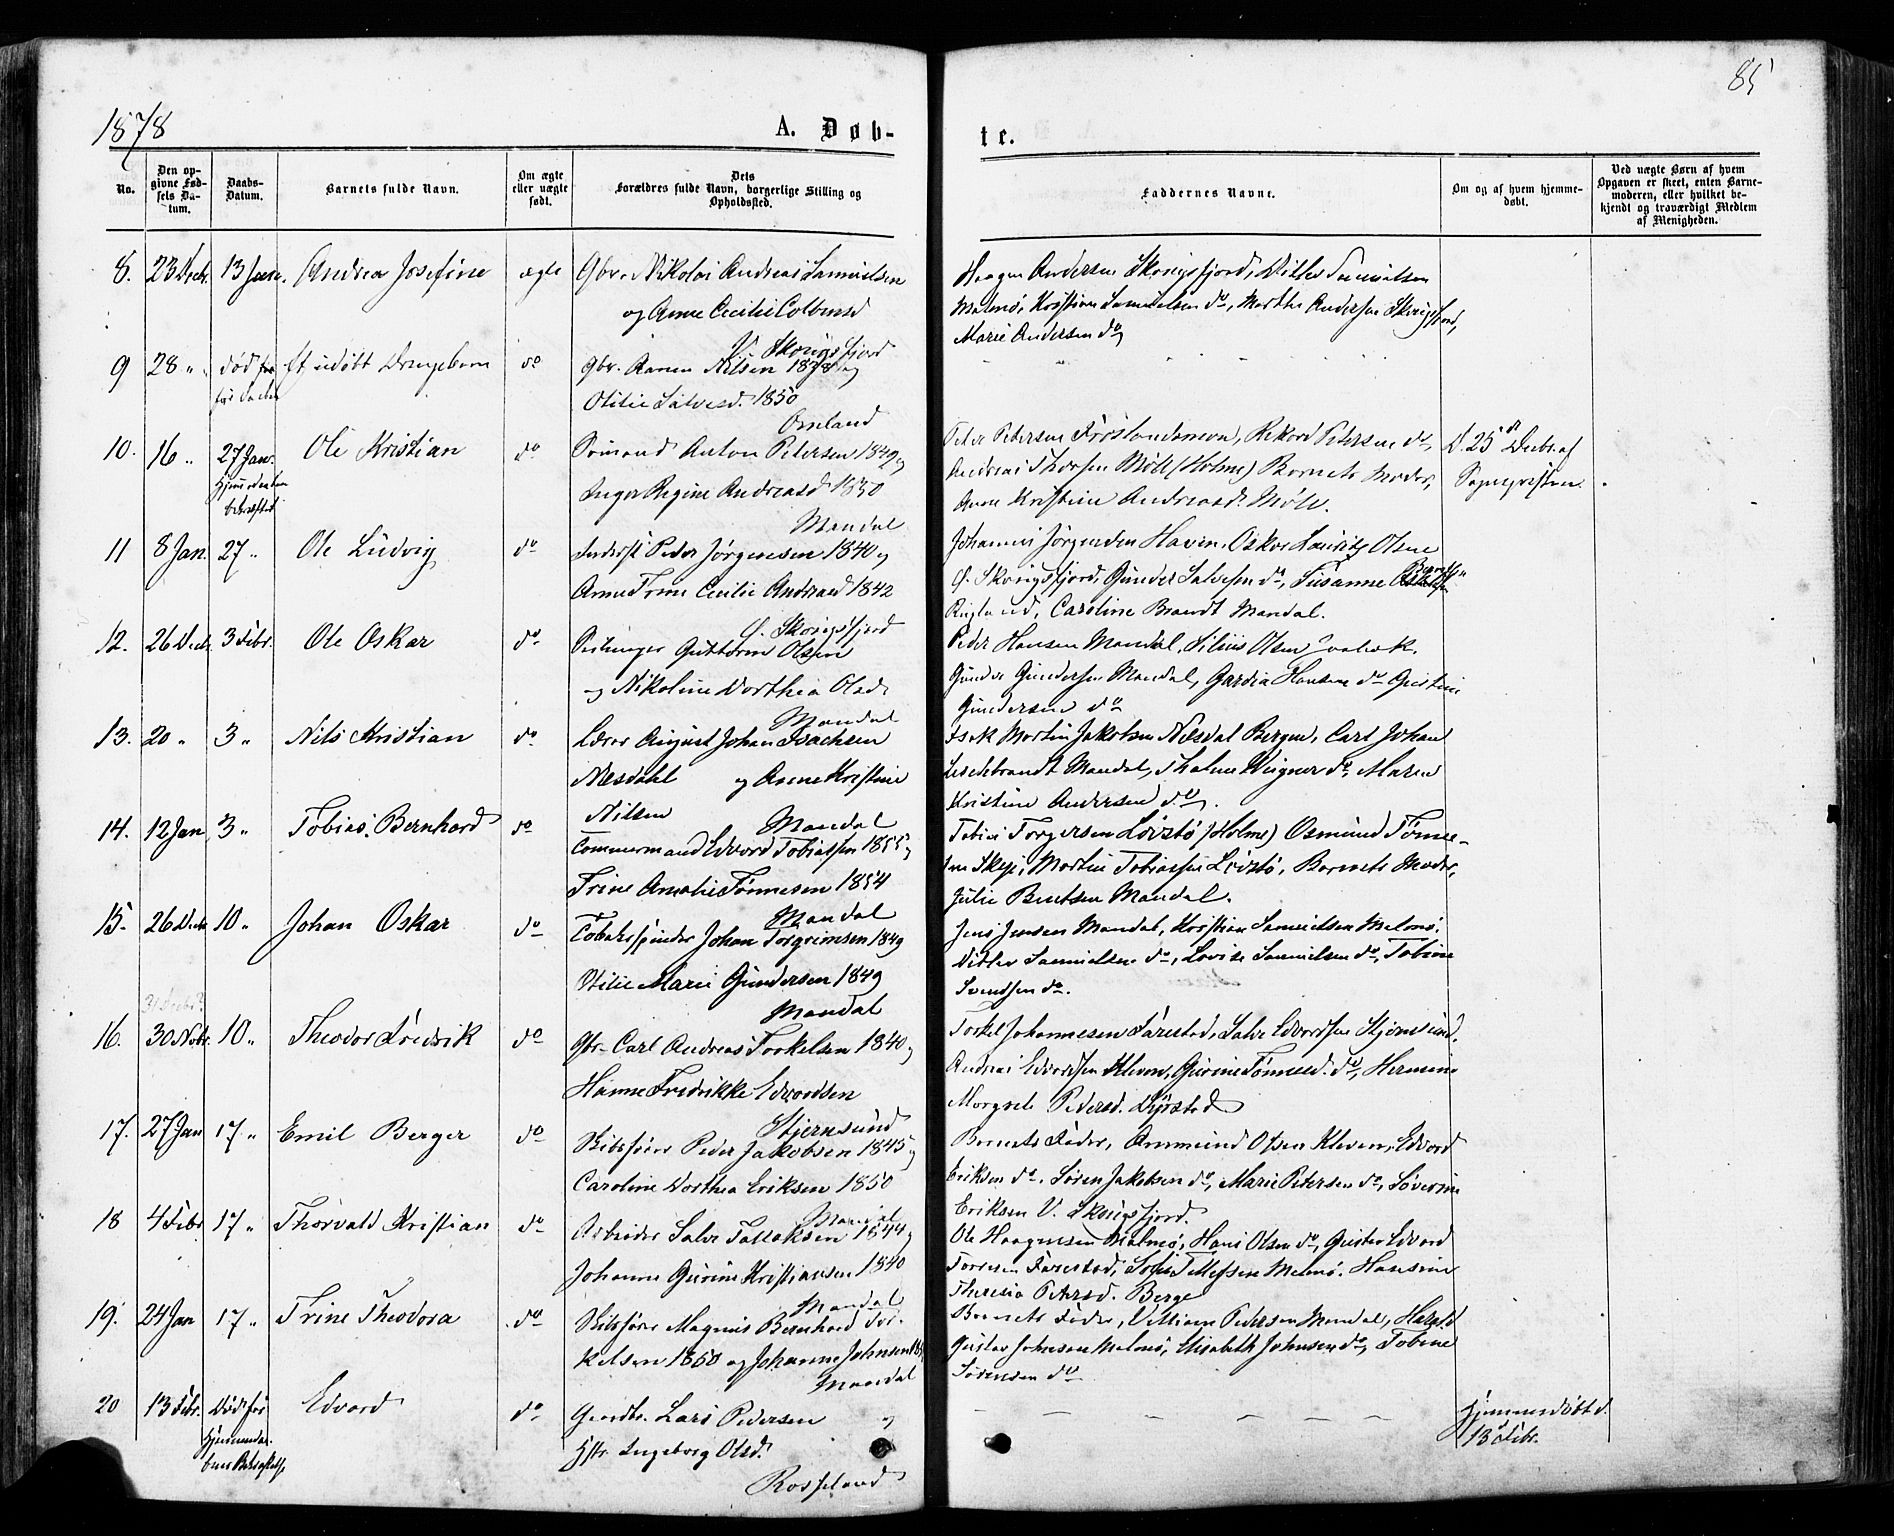 1878
A. Døb-
te.
85
No.
Den op-
givne Fød-
sels Da-
tum.
Daabs-
Datum.
Barnets fulde Navn.
Om ægte
eller uægte
født.
Dets
Forældres fulde Navn, borgerlige Stilling og
Opholdssted.
Faddernes Navne.
Om og af hvem hjemme-
døbt.
Ved uægte Børn af hvem
Opgaven er skeet, enten Barne-
moderen, eller hvilket be-
kjendt og troværdigt Medlem
af Menigheden.
8. 23 Decbr. 13 Janr. Andrea Josefine ægte Gbr. Nikolai Andreas Samuelsen
og Anne Cecilie Colbensd
V. Skovigsfjord
Haagen Andersen Skovigsfjord, Ditlev Samuelsen
Malmø, Kristian Samuelsen do, Marthe Andersen Skovigsfjord,
Marie Andersen do
9 28 " død før
før Daaben
Et udøbt Drengebarn do Gbr. Aanen Nilsen 1838 og
Otilie Salvesd. 1850
Omland
10. 16 " 27 Jan.
Hjemmedaaben
bekræftet
Ole Kristian do Sømand Anton Petersen 1849 og
Inger Regine Andreasd 1850
Mandal
Peter Petersen Frøslandsmoen, Rikard Petersen do,
Andreas Thorsen Møll (Holme) Barnets Moder,
Anne Kristine Andreasd. Møll.
D. 25 Decbr. af
Sognepresten.
11 8 Jan. 27 " Ole Ludvig do Inderst Peder Jørgensen 1840 og
Anne Trine Cecilie Andreasd 1842
Ø. Skovigsfjord
Johannes Jørgensen Haven, Oskar Lauritz Olsen
Ø. Skovigsfjord, Gunder Salvesen do, Susanne
Ringlund, Caroline Brandt Mandal.
12. 26 Decbr. 3 Febr. Ole Oskar do Guttorm Olsen
og Nikoline Dorthea Olsd.
Mandal
Peder Hansen Mandal, Silius Olsen
Gunder Gundersen Mandal, Gardia Hansen do Gustine
Gundersen do
13. 20 " 3 " Nils Kristian do Lærer August Johan Isachsen
Næsdahl og Anne Kristine
Nilsen Mandal
Isak Martin Jakobsen Næsdal Bergen, Carl Johan
Mandal, Thalme Wigner do, Maren
Kristine Andersen do.
14. 12 Jan. 3 " Tobias Bernhard do Tømmermand Edvard Tobiassen 1855 og
Trine Amalie Tønnesen 1854
Mandal
Tobias Torgersen Løvstø (Holme) Osmund Tønne-
sen Skeje, Martin Tobiassen Løvstø, Barnets Moder,
Julie Bentsen Mandal.
15. 26 Decbr 10 " Johan Oskar do Tobaksspinder Johan Torgrimsen 1849
Otilie Marie Gundersen 1849
Mandal
Jens Jensen Mandal, Kristian Samuelsen Malmø,
Ditlev Samuelsen do, Lovise Samuelsen do, Tobine
Svendsen do.
16. 30 Novbr. 10 " Theodor Fredrik do Gbr. Carl Andreas Torkelsen 1840 og
Hanne Fredrikke Edvardsen
Stjernsund
Torkel Johannesen Farestad, Salve Edvardsen Stjernsund,
Andreas Edvardsen Kleven, Gurine Tønnesd. do, Hermine
Margrete Pedersd. Dyrstad
17. 27 Jan 17 " Emil Berger do Skibsfører Peder Jakobsen 1845 og
Caroline Dorthea Eriksen 1850
Mandal
Barnets Fader, Ammund Olsen Kleven, Edvard
Eriksen do, Søren Jakobsen do, Marie Petersen do, Søverine
Eriksen V. Skovigsfjord.
18 4 Febr 17 " Thorvald Kristian do Arbeider Salve Tallaksen 1844 og
Johanne Gurine Kristiansen 1840
Mandal
Ole Haagensen Malmø, Hans Olsen do, Gustav Edvard
Torresen Farestad, Sofie Tellefsen Malmø, Hansine
Theresia Petersd. Berge
19. 24 Jan 17 " Trine Theodora do Skibsfører Magnus Bernhard Tor-
kelsen 1850 og Johanne Johnsen
Mandal
Barnets Fader, Villiam Petersen Mandal, Harald
Gustav Johnsen Malmø, Elisabeth Johnsen do, Tobine
Sørensen do
20 13 Febr. Død før
Hjemmedaa-
bens Bekræftelse
Edvard do Gaardbr. Lars Pedersen og
Hstr. Ingeborg Olsd.
Rosseland
Hjemmedøbt d.
13 Febr.